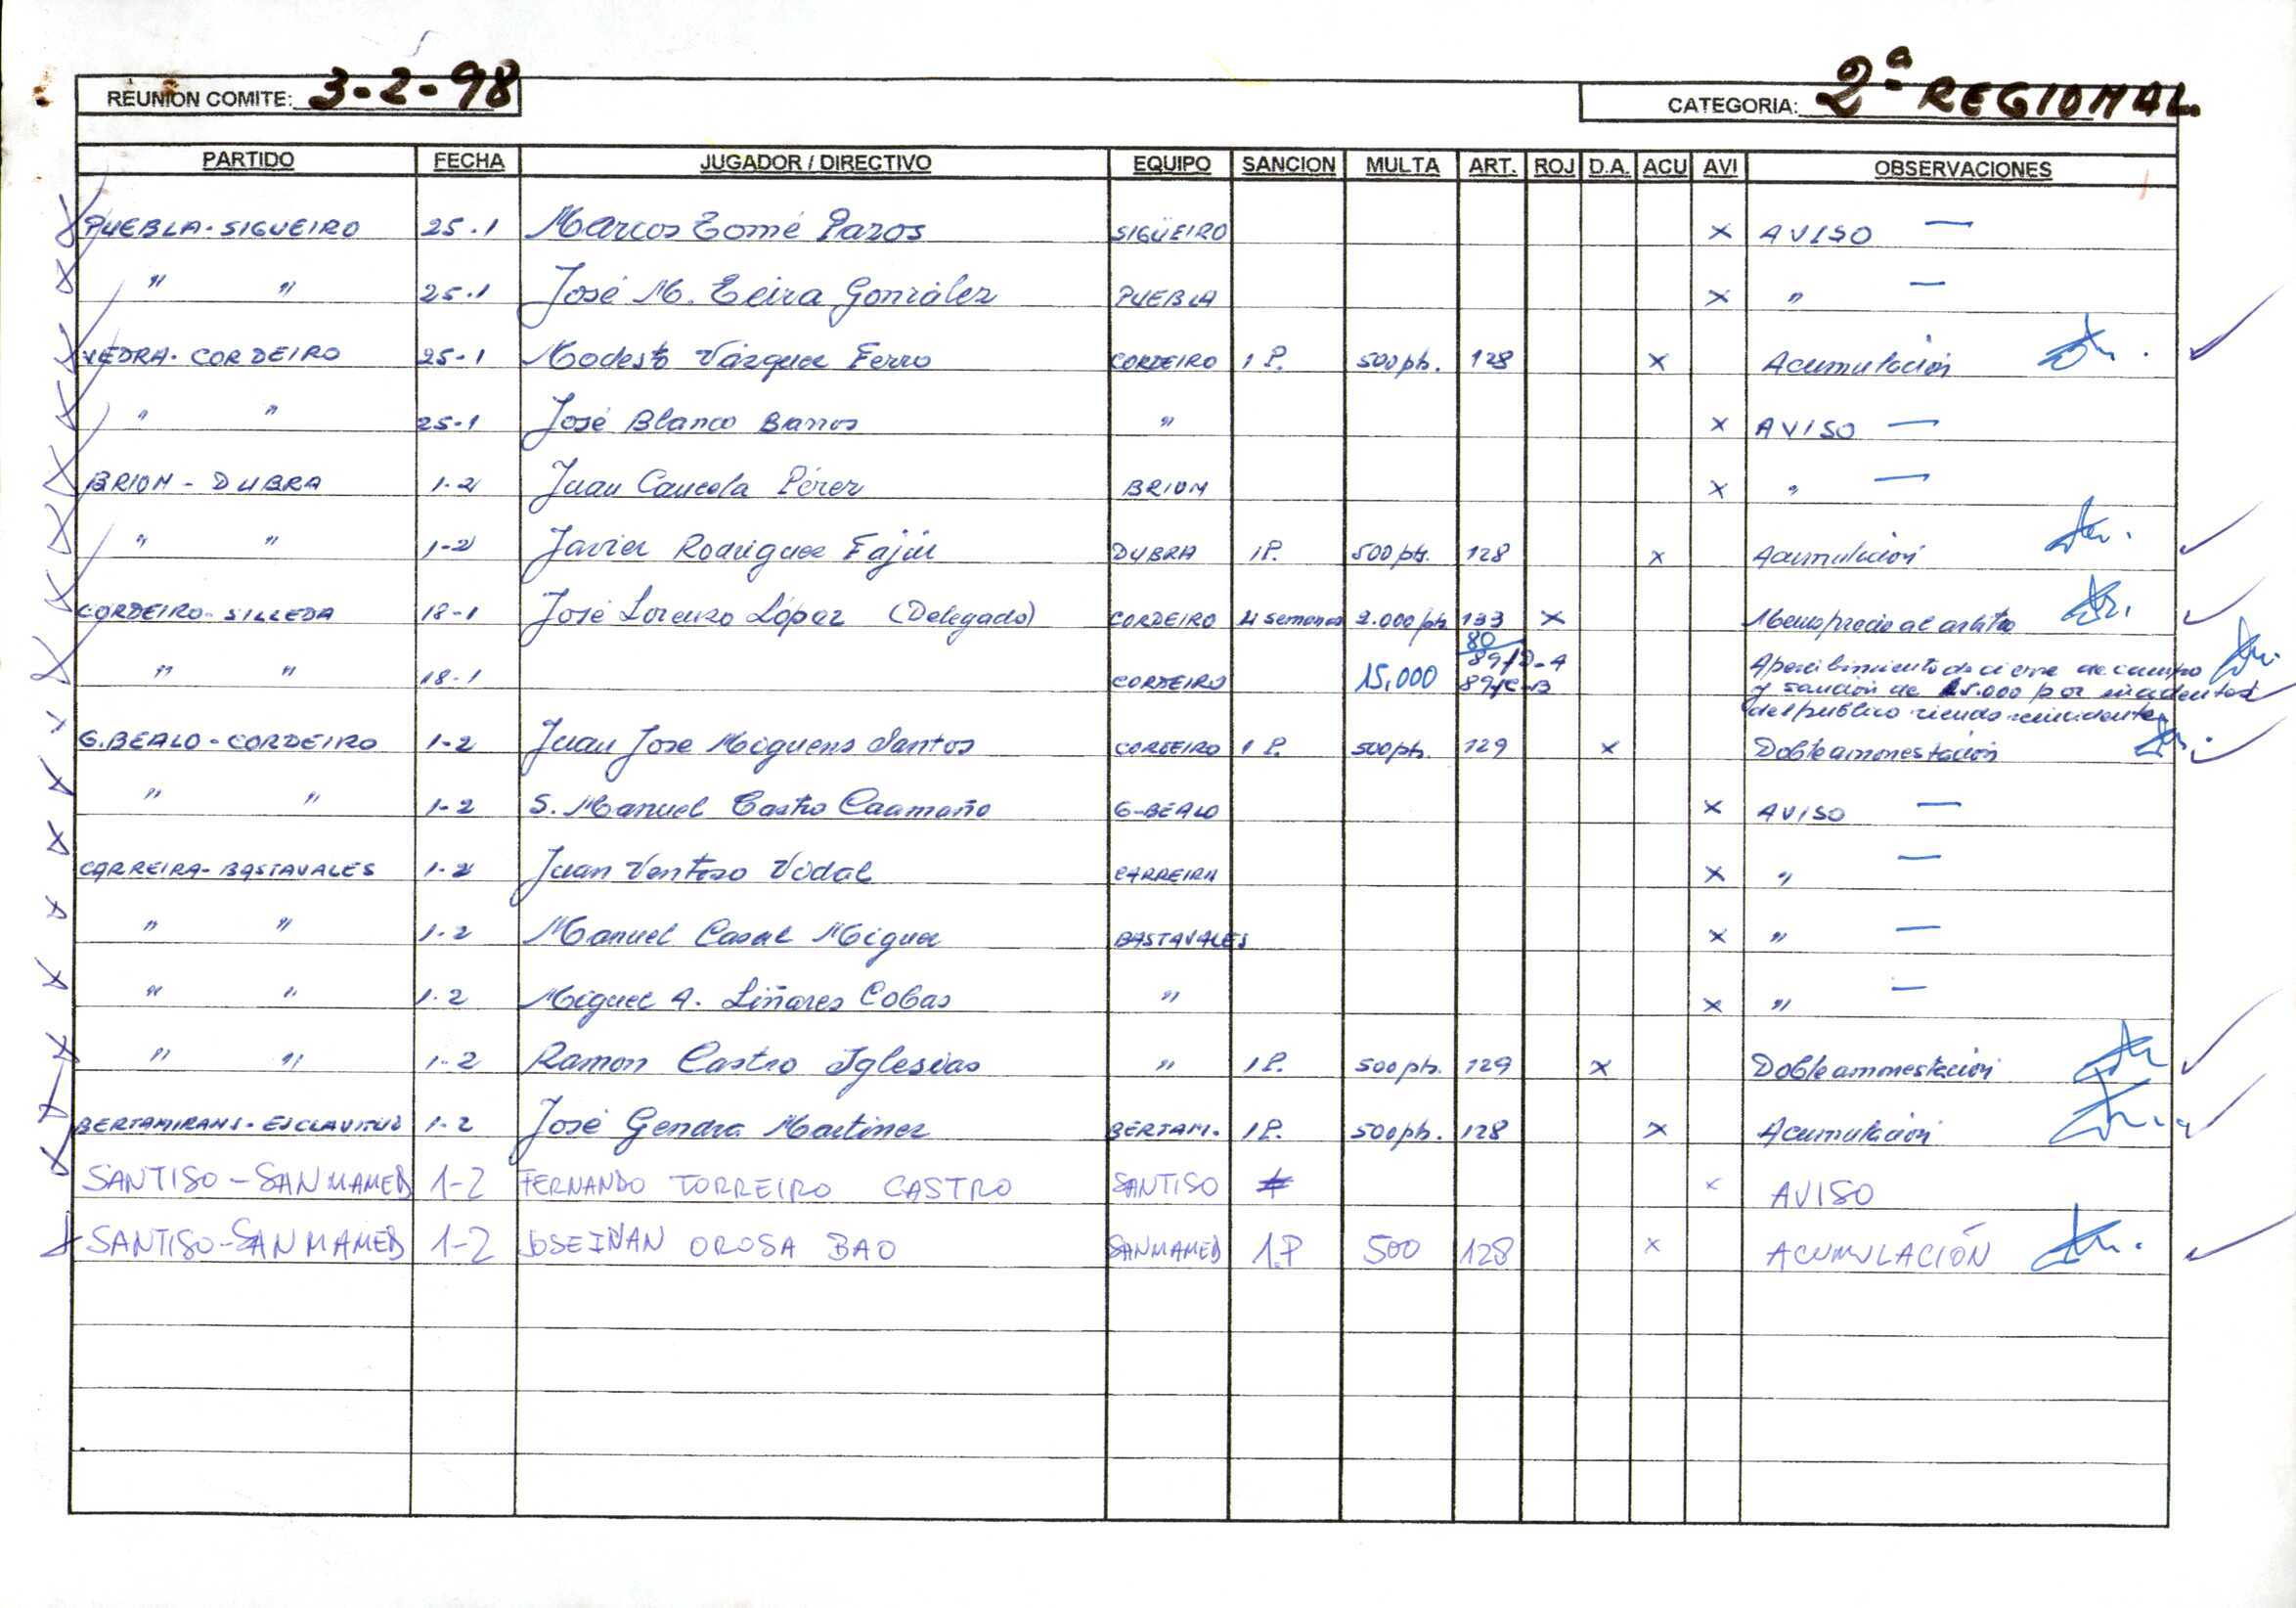 REUNION COMITE: 3-2-98
CATEGORIA: 2ª REGIONAL.
PARTIDO FECHA JUGADOR / DIRECTIVO EQUIPO SANCION MULTA ART. ROJ D.A. ACU AVI OBSERVACIONES
PUEBLA-SIGUEIRO 25-1 Marcos Tomé Pazos SIGÜEIRO x AVISO —
" " 25-1 José M. Teira González PUEBLA x " —
VEDRA-CORDEIRO 25-1 Modesto Vázquez Ferro CORDEIRO 1 P. 500 pts. 128 x Acumulación
" " 25-1 José Blanco Barros " x AVISO —
BRION - DUBRA 1-2 Juan Cancela Pérez BRION x " —
" " 1-2 Javier Rodriguez Fajin DUBRA 1P. 500 pts. 128 x Acumulación
CORDEIRO-SILLEDA 18-1 José Lorenzo López (Delegado) CORDEIRO 4 semanas 2.000 pts 133 x Menosprecio al arbitro
80
" " 18-1 CORDEIRO 15.000 89/D-A 89/C-B Apercibimiento de cierre de campo
y sanción de 15.000 por incidentes
del publico siendo reincidente
G.BEALO-CORDEIRO 1-2 Juan Jose Miguens Santos CORDEIRO 1 P. 500 pts. 129 x Doble amonestación
" " 1-2 S. Manuel Castro Caamaño G-BEALO x AVISO —
CARREIRA-BASTAVALES 1-2 Juan Ventoso Vidal CARREIRA x " —
" " 1-2 Manuel Casal Miguez BASTAVALES x " —
" " 1-2 Miguel A. Liñares Cobas " x " —
" " 1-2 Ramon Castro Iglesias " 1P. 500 pts. 129 x Doble amonestación
BERTAMIRANS-ESCLAVITUD 1-2 José Gendra Martinez BERTAM. 1P. 500 pts. 128 x Acumulación
SANTISO-SANMAMED 1-2 FERNANDO TORREIRO CASTRO SANTISO x AVISO
SANTISO-SANMAMED 1-2 JOSE IÑAN OROSA BAO SANMAMED 1.P 500 128 x ACUMULACIÓN